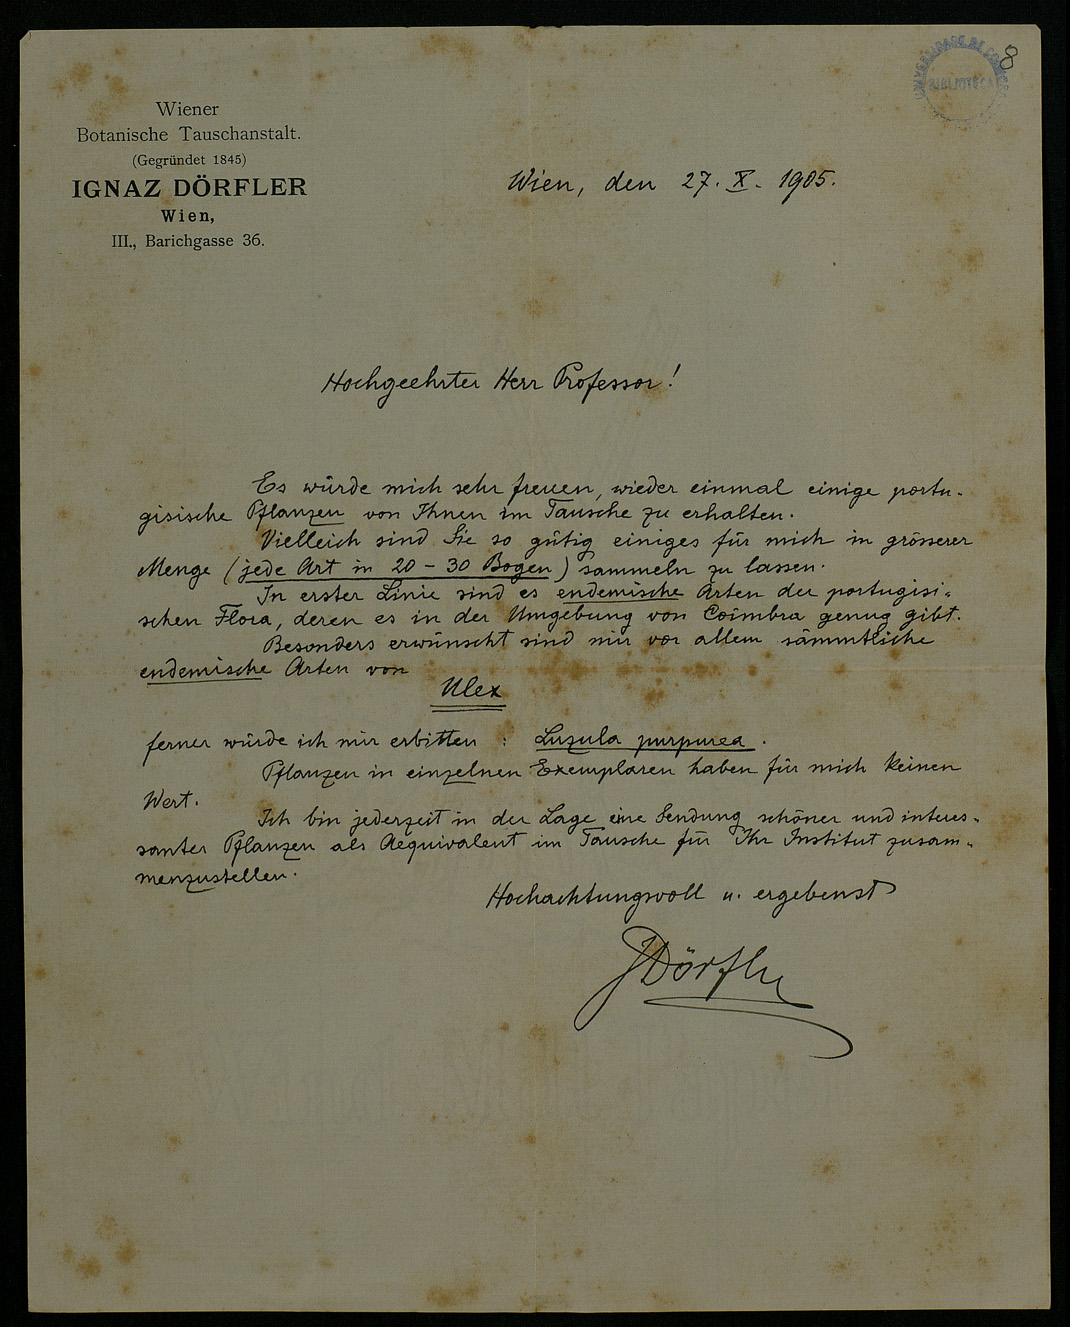 8
UNIVERSIDADE DE COIMBRA
BIBLIOTECA
Wiener
Botanische Tauschanstalt.
(Gegründet 1845)
IGNAZ DÖRFLER
Wien,
III., Barichgasse 36.
Wien, den 27. X. 1905.
Hochgeehrter Herr Professor!
Es würde mich sehr freuen, wieder einmal einige portu-
gisische Pflanzen von Ihnen im Tausche zu erhalten.
Vielleich sind Sie so gütig einiges für mich in grösserer
Menge (jede Art in 20 – 30 Bogen) sammeln zu lassen.
In erster Linie sind es endemische Arten der portugisi-
schen Flora, deren es in der Umgebung von Coimbra genug gibt.
Besonders erwünscht sind mir vor allem sämmtliche
endemische Arten von
Ulex
ferner würde ich mir erbitten : Luzula purpurea.
Pflanzen in einzelnen Exemplaren haben für mich keinen
Wert.
Ich bin jederzeit in der Lage eine Sendung schöner und interes-
santer Pflanzen als Aequivalent im Tausche für Ihr Institut zusam-
menzustellen.
Hochachtungsvoll u. ergebenst
JDörfler